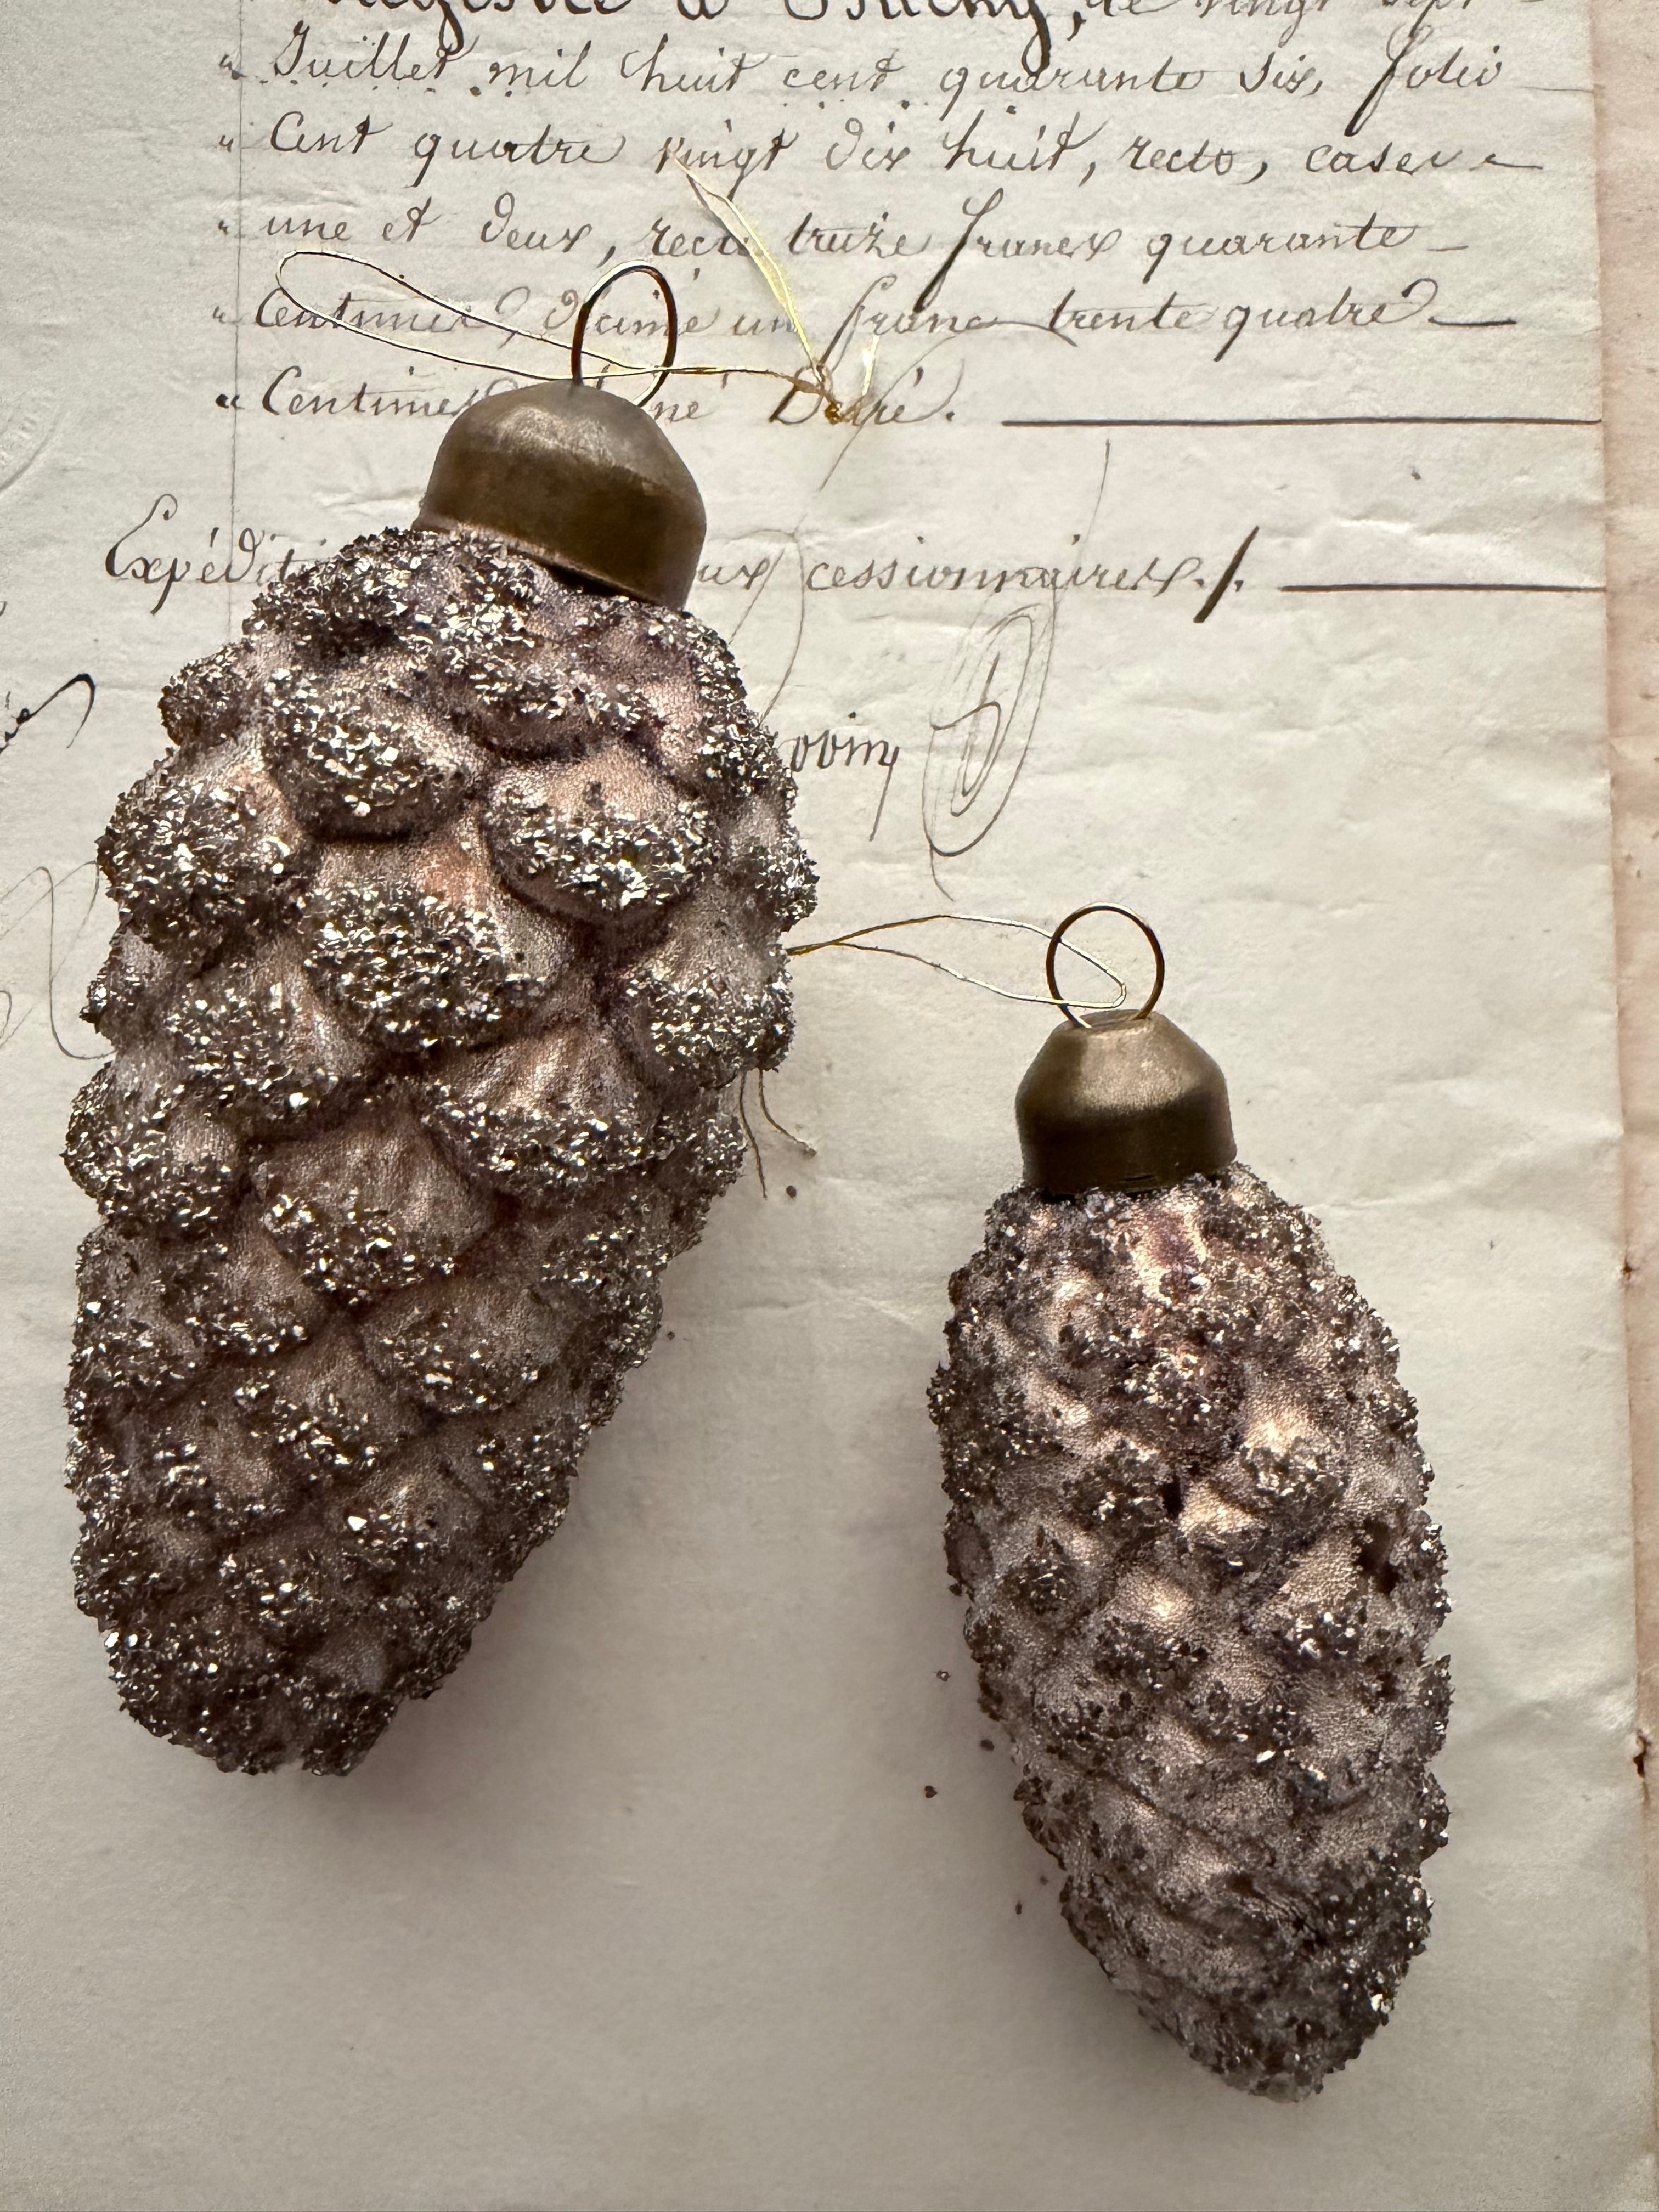 de vingt sept
" Juillet mil huit cent quarante six, folio
" Cent quatre vingt dix huit, recto, cases
" une et deux, recu treize francs quarante
" Centimes, décime un franc trente quatre
" Centimes né Delié.
Expéditi ux cessionnaires./.